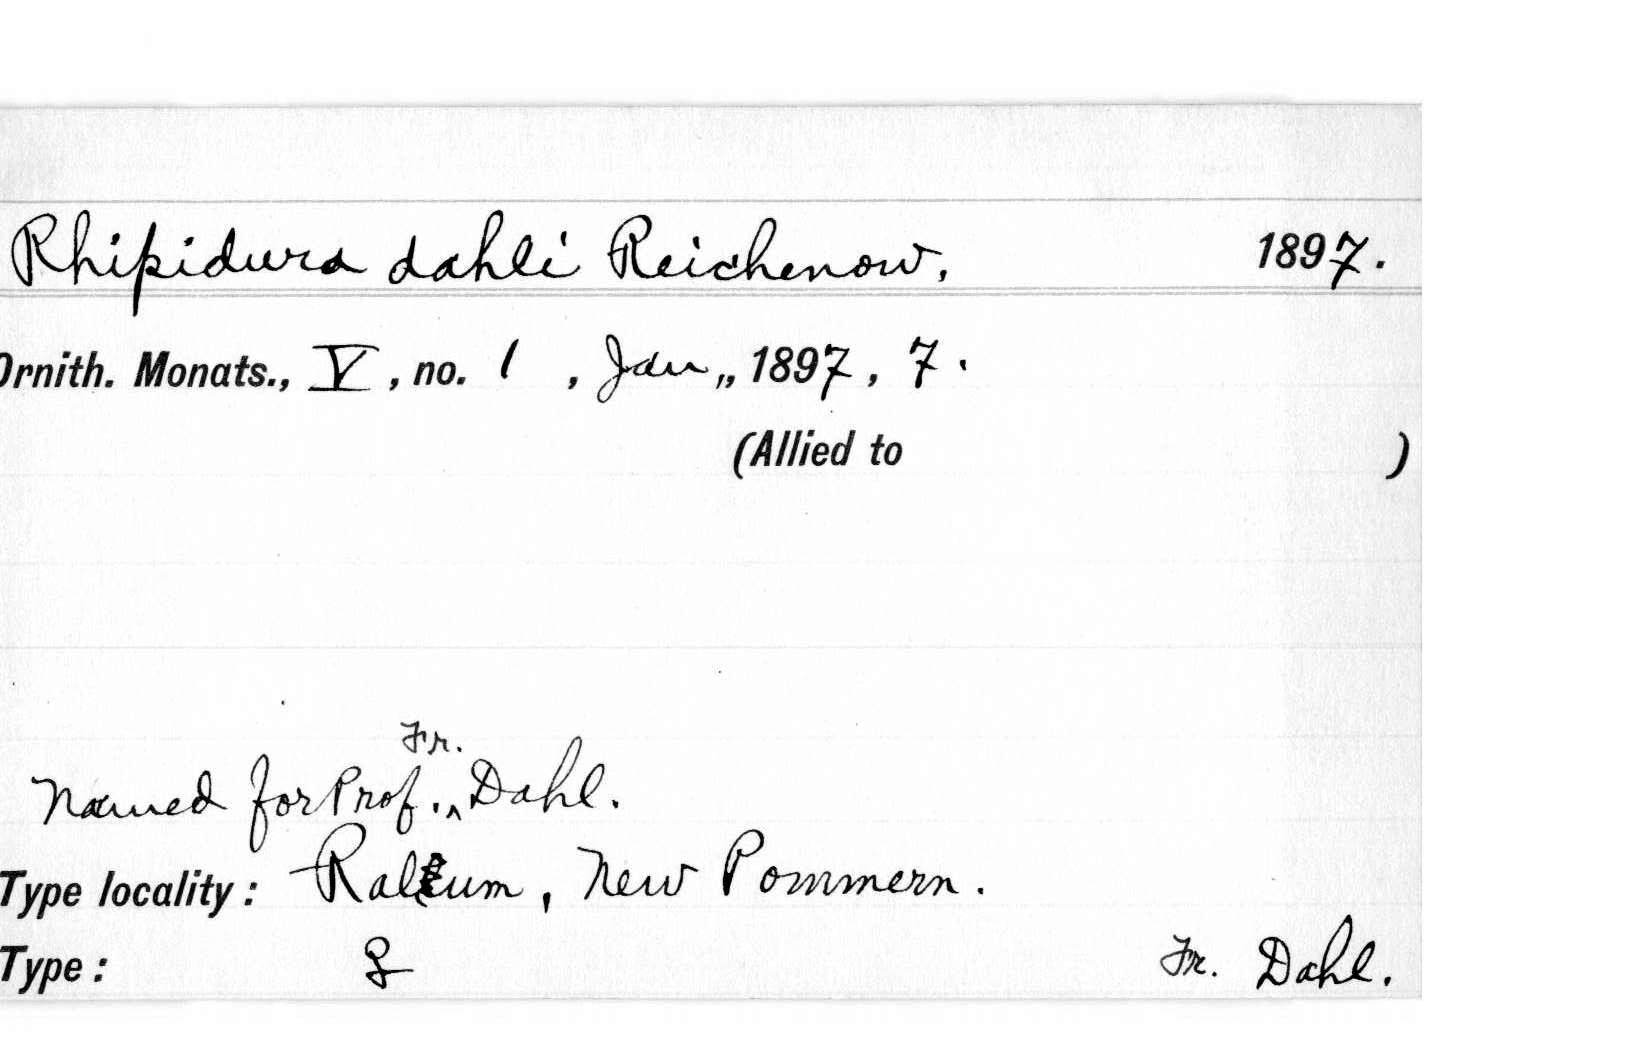 Rhipidura dahli Reichenow, 1897.
Ornith. Monats., V, no. 1, Jan., 1897, 7.
(Allied to )
Fr.
Named for Prof. ^ Dahl.
Type locality: Ralum, New Pommern.
Type: ♀ Fr. Dahl.